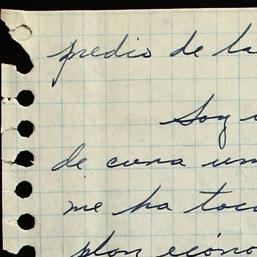 predio de la
Soy
de cuna um
me ha toca
plan econo